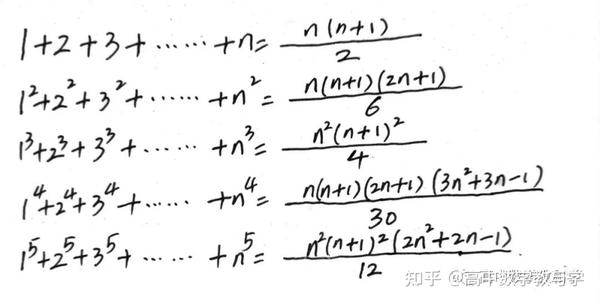 1+2+3+……+n= n(n+1)/2
1²+2²+3²+……+n²= n(n+1)(2n+1)/6
1³+2³+3³+……+n³= n²(n+1)²/4
1⁴+2⁴+3⁴+……+n⁴= n(n+1)(2n+1)(3n²+3n-1)/30
1⁵+2⁵+3⁵+……+n⁵= n²(n+1)²(2n²+2n-1)/12
知乎 @高中数学教与学